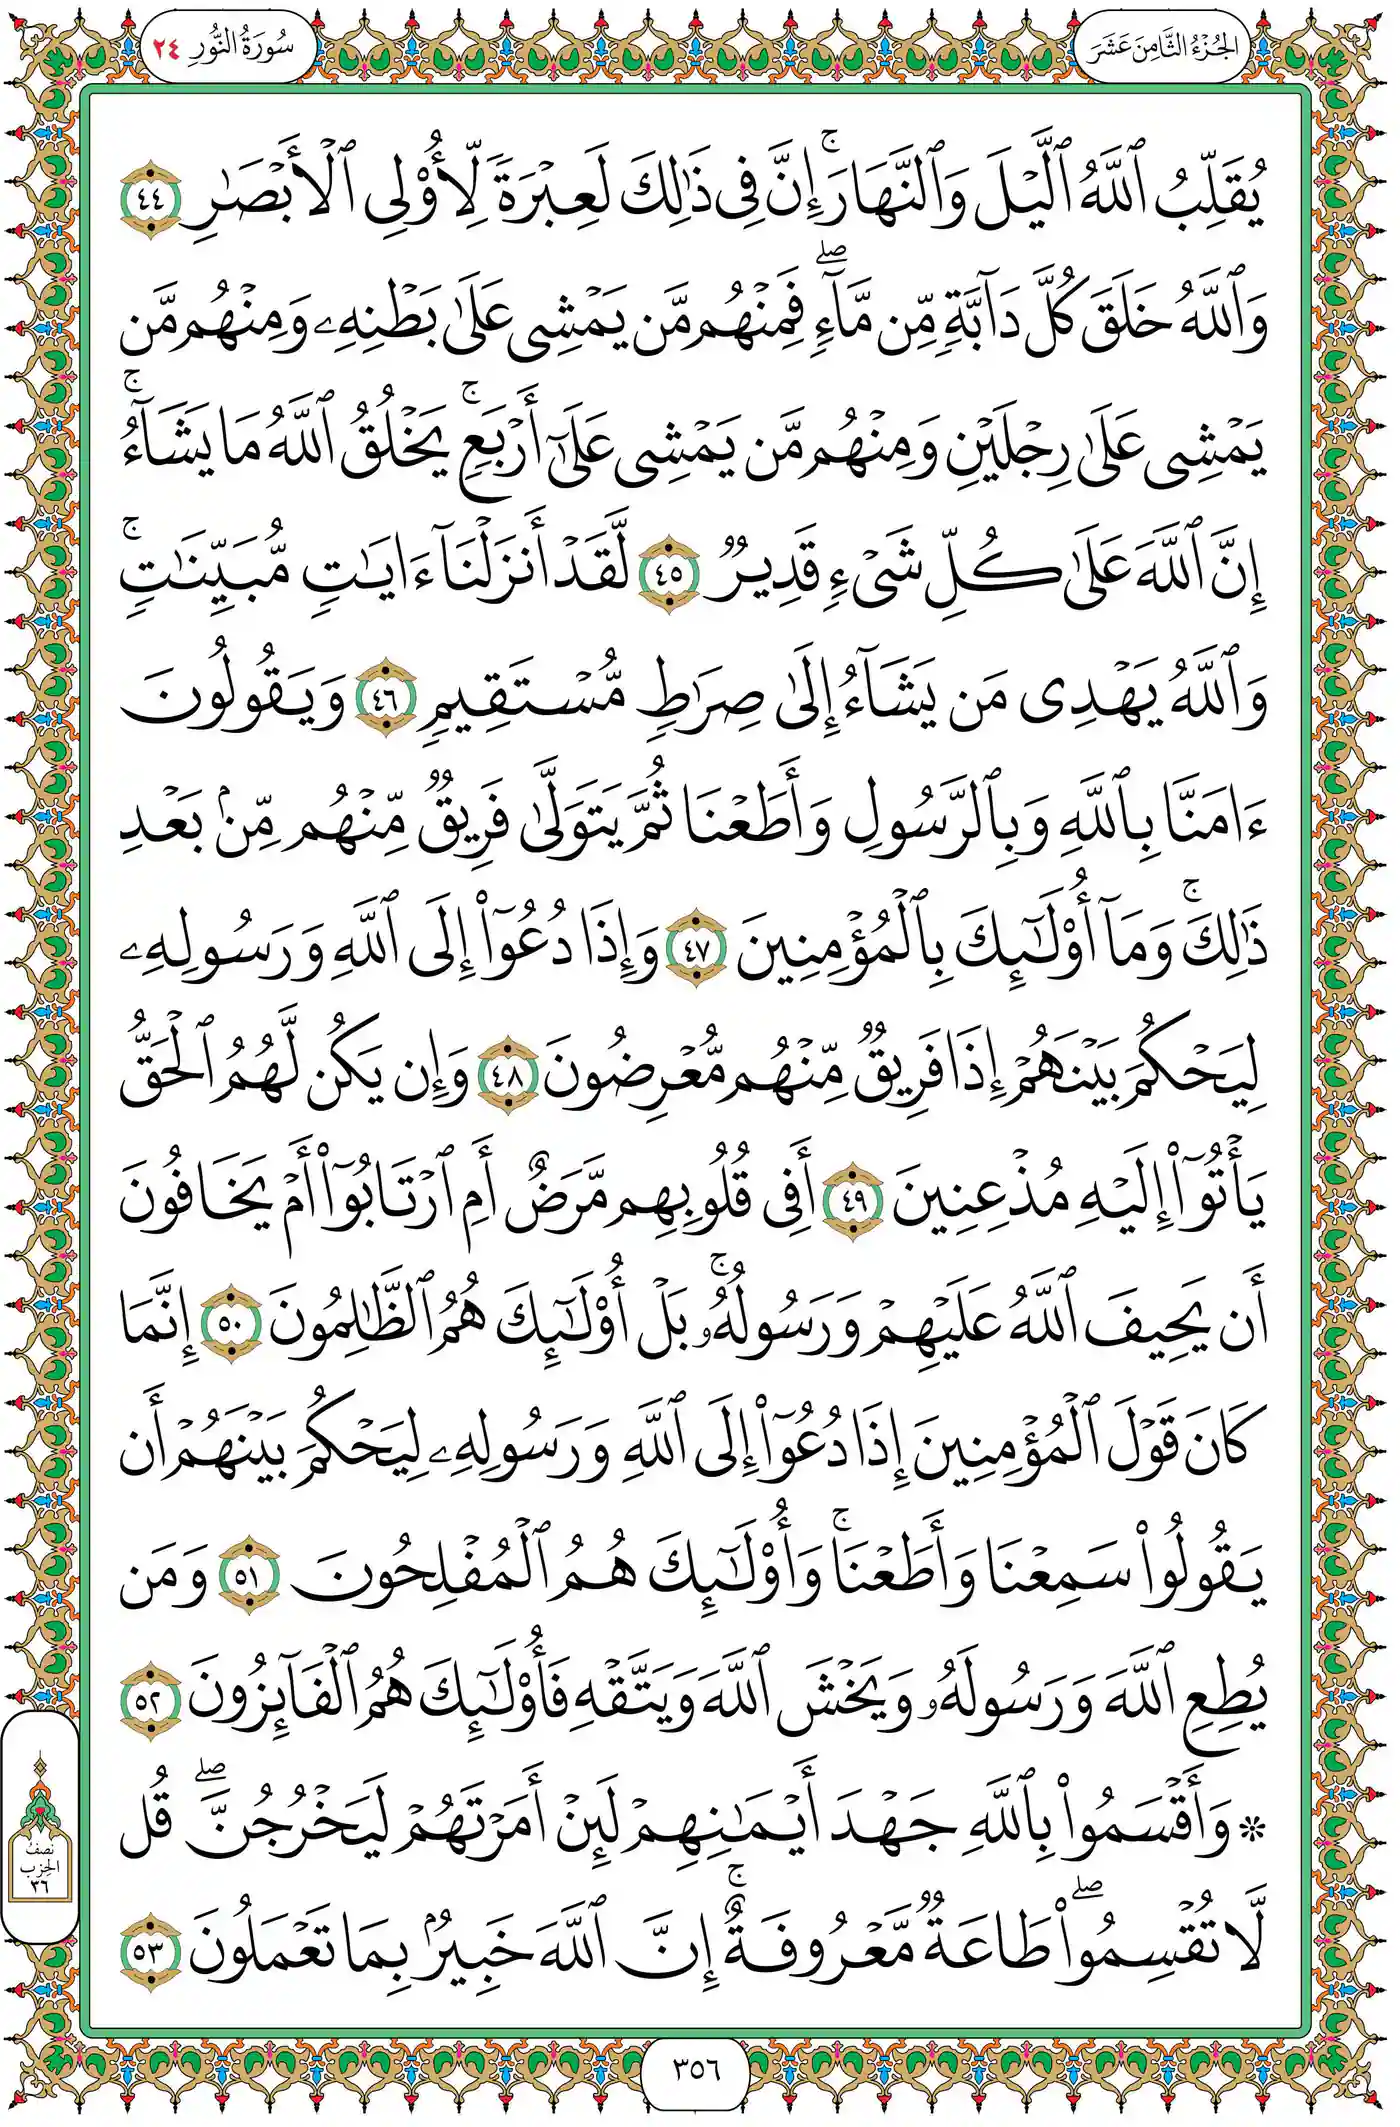 الجُزْءُ الثَّامِنَ عَشَرَ
سُورَةُ النُّورِ ٢٤
يُقَلِّبُ ٱللَّهُ ٱلَّيْلَ وَٱلنَّهَارَۚ إِنَّ فِى ذَٰلِكَ لَعِبْرَةً لِّأُو۟لِى ٱلْأَبْصَٰرِ ٤٤
وَٱللَّهُ خَلَقَ كُلَّ دَآبَّةٍ مِّن مَّآءٍۖ فَمِنْهُم مَّن يَمْشِى عَلَىٰ بَطْنِهِۦ وَمِنْهُم مَّن
يَمْشِى عَلَىٰ رِجْلَيْنِ وَمِنْهُم مَّن يَمْشِى عَلَىٰٓ أَرْبَعٍۚ يَخْلُقُ ٱللَّهُ مَا يَشَآءُۚ
إِنَّ ٱللَّهَ عَلَىٰ كُلِّ شَىْءٍ قَدِيرٌ ٤٥ لَّقَدْ أَنزَلْنَآ ءَايَٰتٍ مُّبَيِّنَٰتٍۚ
وَٱللَّهُ يَهْدِى مَن يَشَآءُ إِلَىٰ صِرَٰطٍ مُّسْتَقِيمٍ ٤٦ وَيَقُولُونَ
ءَامَنَّا بِٱللَّهِ وَبِٱلرَّسُولِ وَأَطَعْنَا ثُمَّ يَتَوَلَّىٰ فَرِيقٌ مِّنْهُم مِّنۢ بَعْدِ
ذَٰلِكَۚ وَمَآ أُو۟لَٰٓئِكَ بِٱلْمُؤْمِنِينَ ٤٧ وَإِذَا دُعُوٓا۟ إِلَى ٱللَّهِ وَرَسُولِهِۦ
لِيَحْكُمَ بَيْنَهُمْ إِذَا فَرِيقٌ مِّنْهُم مُّعْرِضُونَ ٤٨ وَإِن يَكُن لَّهُمُ ٱلْحَقُّ
يَأْتُوٓا۟ إِلَيْهِ مُذْعِنِينَ ٤٩ أَفِى قُلُوبِهِم مَّرَضٌ أَمِ ٱرْتَابُوٓا۟ أَمْ يَخَافُونَ
أَن يَحِيفَ ٱللَّهُ عَلَيْهِمْ وَرَسُولُهُۥۚ بَلْ أُو۟لَٰٓئِكَ هُمُ ٱلظَّٰلِمُونَ ٥٠ إِنَّمَا
كَانَ قَوْلَ ٱلْمُؤْمِنِينَ إِذَا دُعُوٓا۟ إِلَى ٱللَّهِ وَرَسُولِهِۦ لِيَحْكُمَ بَيْنَهُمْ أَن
يَقُولُوا۟ سَمِعْنَا وَأَطَعْنَاۚ وَأُو۟لَٰٓئِكَ هُمُ ٱلْمُفْلِحُونَ ٥١ وَمَن
يُطِعِ ٱللَّهَ وَرَسُولَهُۥ وَيَخْشَ ٱللَّهَ وَيَتَّقْهِ فَأُو۟لَٰٓئِكَ هُمُ ٱلْفَآئِزُونَ ٥٢
۞ وَأَقْسَمُوا۟ بِٱللَّهِ جَهْدَ أَيْمَٰنِهِمْ لَئِنْ أَمَرْتَهُمْ لَيَخْرُجُنَّۖ قُل
لَّا تُقْسِمُوا۟ۖ طَاعَةٌ مَّعْرُوفَةٌۚ إِنَّ ٱللَّهَ خَبِيرٌۢ بِمَا تَعْمَلُونَ ٥٣
نصف
الحزب
٣٦
٣٥٦